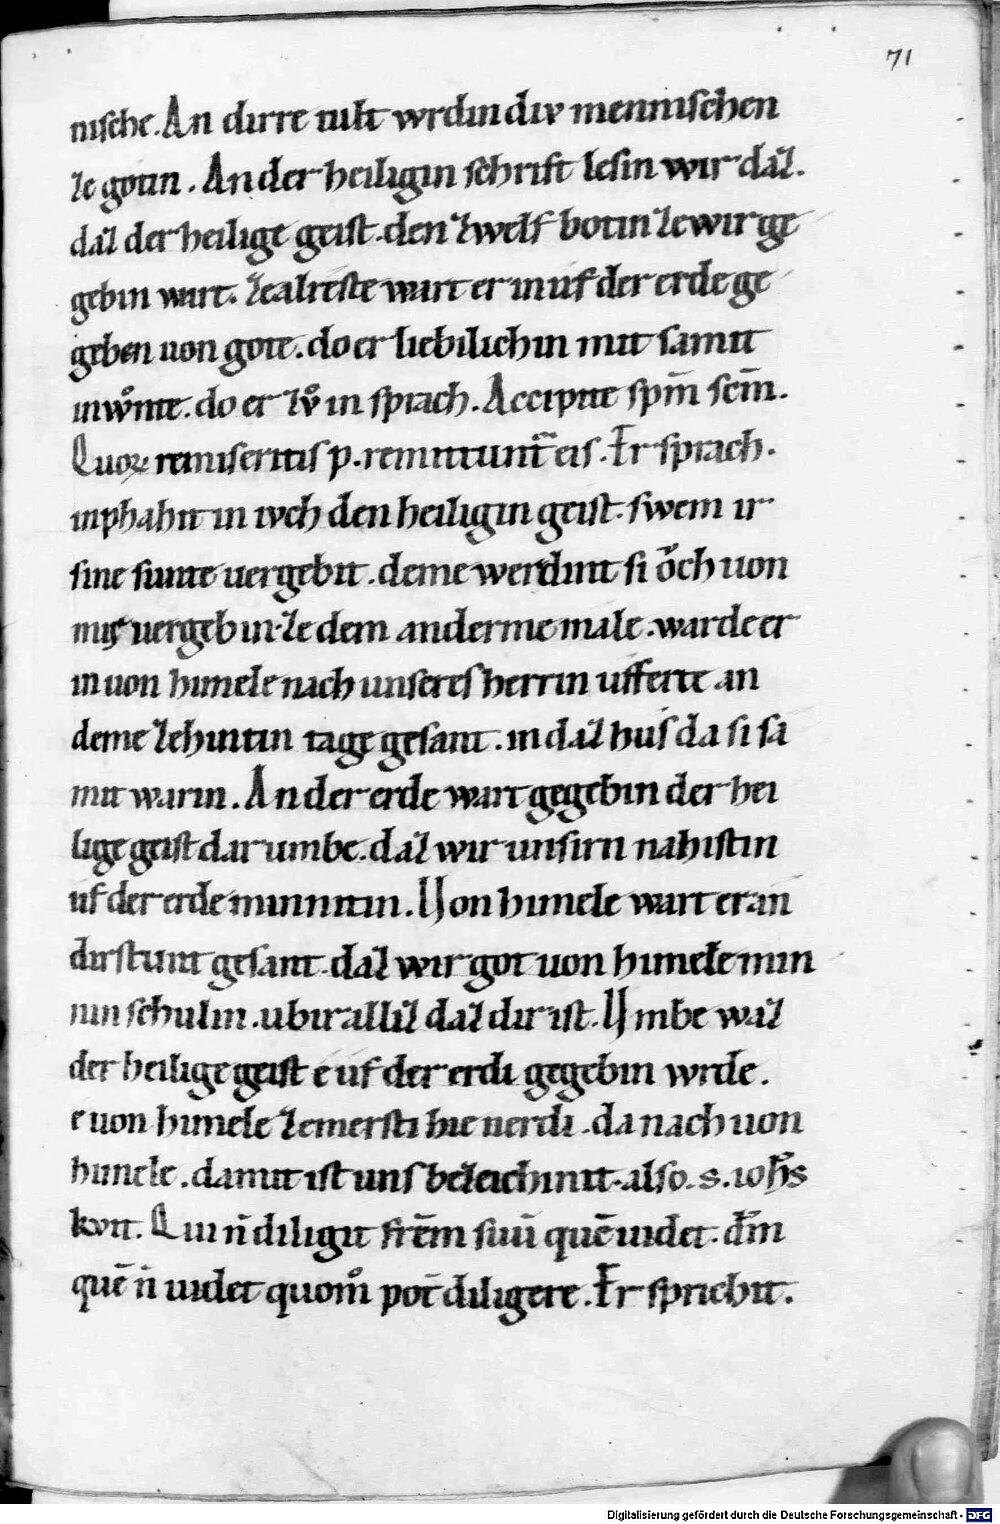 71
nische. An dirre tult wrdin div mennischen
ze gotin. An der heiligin schrift lesin wir daz.
daz der heilige geist. den zwelf botin zewir ge
gebin wart. ze alreste wart er in uf der erde ge
geben uon gote. do er liebilichin mit samit
in wͦnte. do er zvͦ in sprach. Accipite sp̄m sc̄m.
Quoꝝ remiseritis p. remittunt᷑ eis. Er sprach.
inphahit in ivch den heiligin geist. swem ir
sine sunte uergebit. deme werdint si oͮch uon
mir uergebin. ze dem anderme male. warde er
in uon himele nach unseres herrin ufferte an
deme zehintin tage gesant. in daz hus da si sa
mit warin. An der erde wart gegebin der hei
lige geist dar umbe. daz wir unsirn nahistin
uf der erde minnitin. Uon himele wart er an
dirstunt gesant. daz wir got uon himele min
nin schulin. ubir alliz daz dir ist. Umbe waz
der heilige geist e uf der erdi gegebin wrde.
e uon himele zemersti hie nerdi. da nach uon
himele. damit ist uns bezeichinit. also. s. ioh̄s
kvit. Qui n̄ diligit fr̄em suū quē uidet. d̄m
quē n̄ uidet quom̊ pot̄ diligere. Er sprichit.
Digitalisierung gefördert durch die Deutsche Forschungsgemeinschaft - DFG